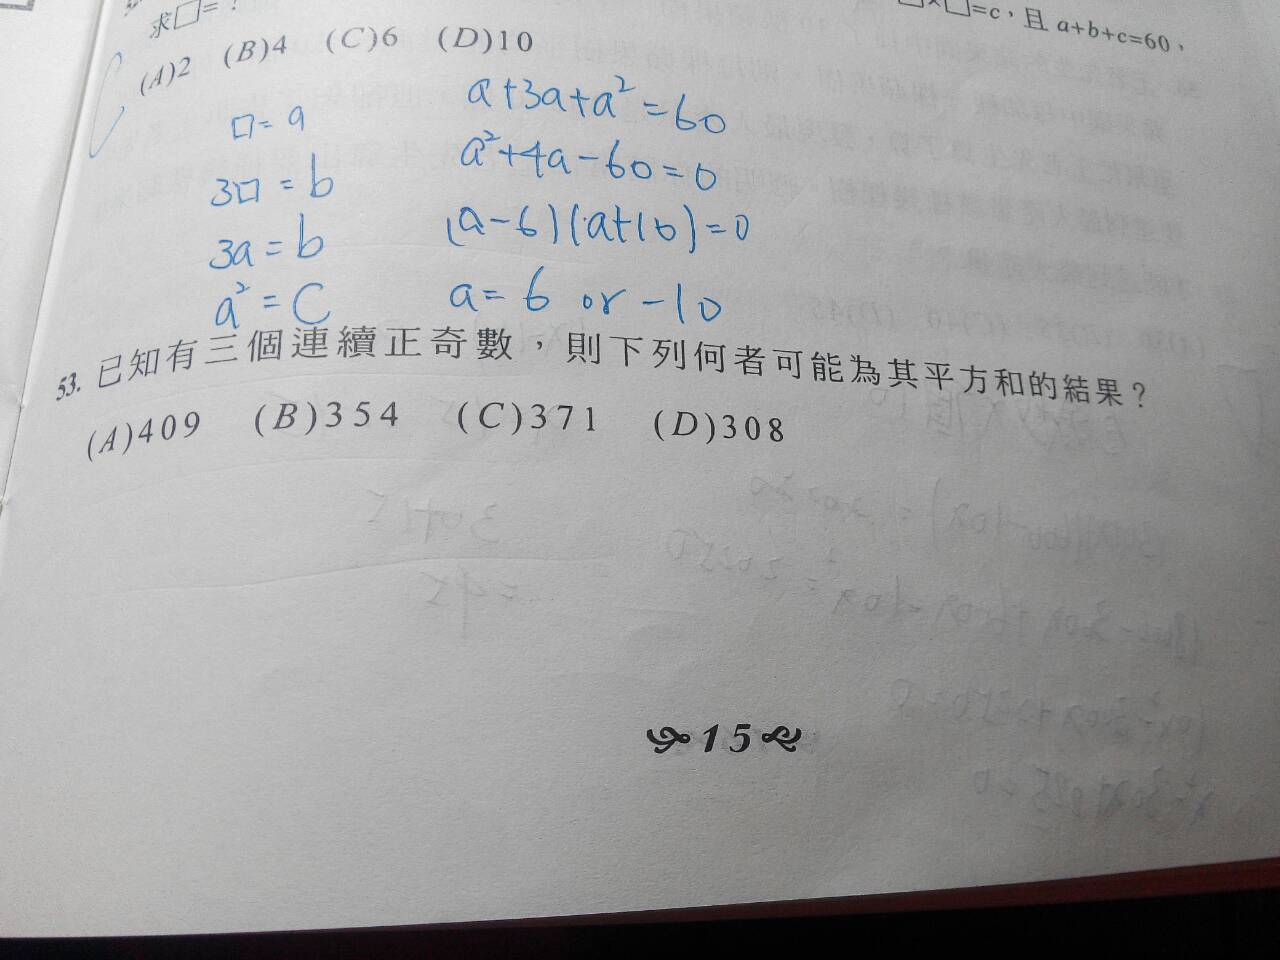 求□=？
□×□=c，且 a+b+c=60，
(A)2 (B)4 (C)6 (D)10
□=a
3□=b
3a=b
a²=C
a+3a+a²=60
a²+4a-60=0
(a-6)(a+10)=0
a=6 or -10
53. 已知有三個連續正奇數，則下列何者可能為其平方和的結果？
(A)409 (B)354 (C)371 (D)308
15